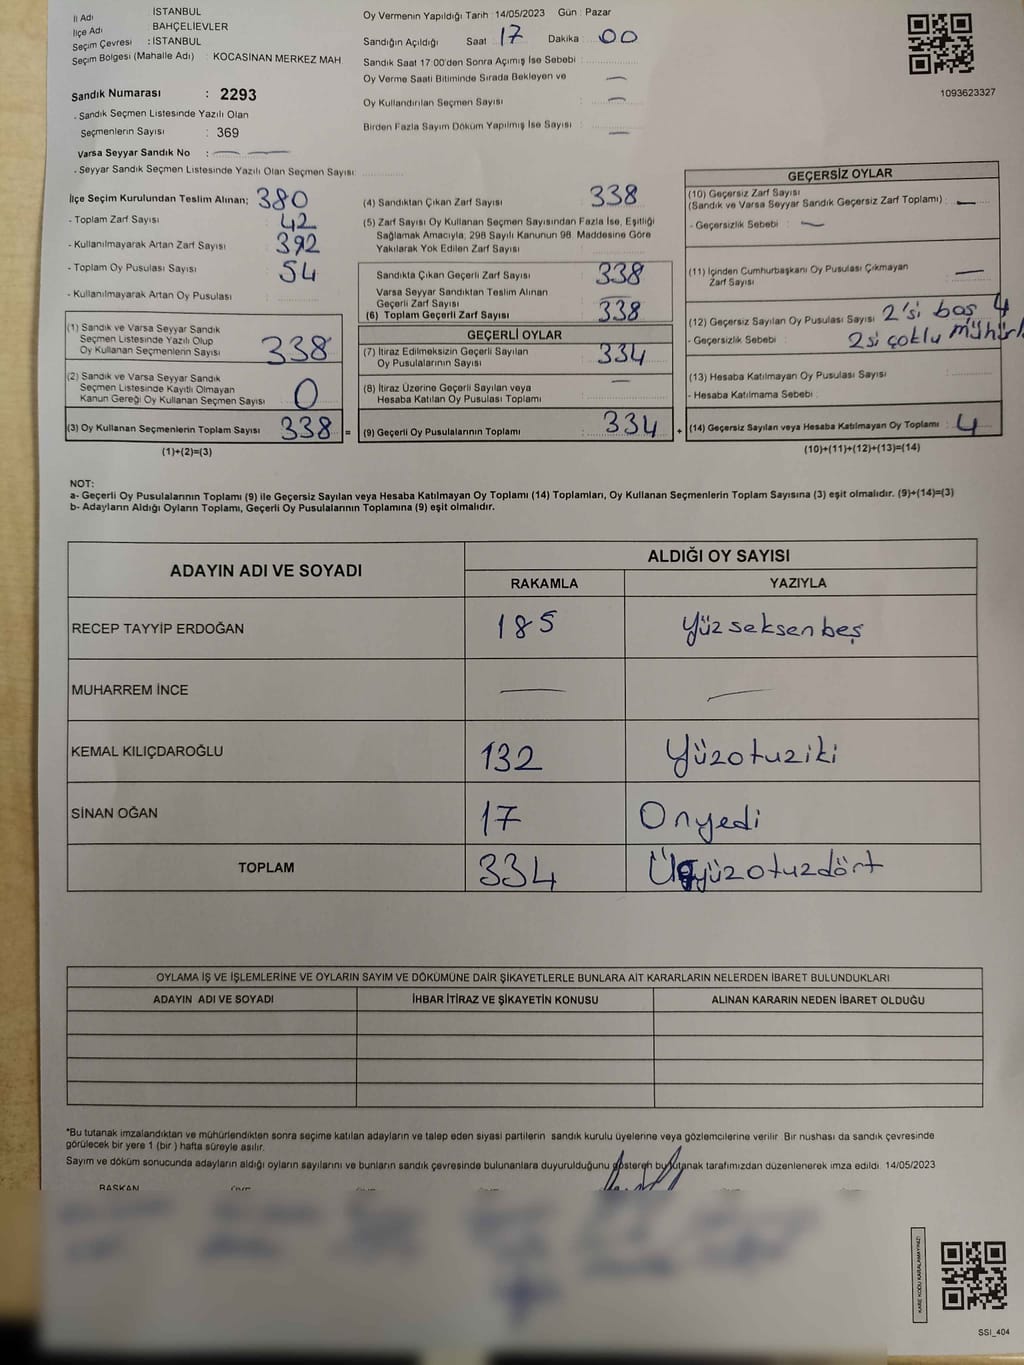 İl Adı İSTANBUL
İlçe Adı BAHÇELİEVLER
Seçim Çevresi : İSTANBUL
Seçim Bölgesi (Mahalle Adı) : KOCASİNAN MERKEZ MAH.
Sandık Numarası : 2293
. Sandık Seçmen Listesinde Yazılı Olan
Seçmenlerin Sayısı : 369
Varsa Seyyar Sandık No : — —
. Seyyar Sandık Seçmen Listesinde Yazılı Olan Seçmen Sayısı
Oy Vermenin Yapıldığı Tarih : 14/05/2023 Gün : Pazar
Sandığın Açıldığı Saat 17 Dakika 00
Sandık Saat 17:00'den Sonra Açımış İse Sebebi :
Oy Verme Saati Bitiminde Sırada Bekleyen ve —
Oy Kullandırılan Seçmen Sayısı : —
Birden Fazla Sayım Döküm Yapılmış İse Sayısı : —
1093623327
İlçe Seçim Kurulundan Teslim Alınan; 380
- Toplam Zarf Sayısı 42
- Kullanılmayarak Artan Zarf Sayısı 392
- Toplam Oy Pusulası Sayısı 54
- Kullanılmayarak Artan Oy Pusulası :
(1) Sandık ve Varsa Seyyar Sandık
Seçmen Listesinde Yazılı Olup
Oy Kullanan Seçmenlerin Sayısı 338
(2) Sandık ve Varsa Seyyar Sandık
Seçmen Listesinde Kayıtlı Olmayan
Kanun Gereği Oy Kullanan Seçmen Sayısı 0
(3) Oy Kullanan Seçmenlerin Toplam Sayısı 338 =
(1)+(2)=(3)
(4) Sandıktan Çıkan Zarf Sayısı : 338
(5) Zarf Sayısı Oy Kullanan Seçmen Sayısından Fazla İse, Eşitliği
Sağlamak Amacıyla, 298 Sayılı Kanunun 98. Maddesine Göre
Yakılarak Yok Edilen Zarf Sayısı :
Sandıkta Çıkan Geçerli Zarf Sayısı : 338
Varsa Seyyar Sandıktan Teslim Alınan
Geçerli Zarf Sayısı :
(6) Toplam Geçerli Zarf Sayısı : 338
GEÇERLİ OYLAR
(7) İtiraz Edilmeksizin Geçerli Sayılan
Oy Pusulalarının Sayısı : 334
(8) İtiraz Üzerine Geçerli Sayılan veya
Hesaba Katılan Oy Pusulası Toplamı : —
(9) Geçerli Oy Pusulalarının Toplamı : 334 +
GEÇERSİZ OYLAR
(10) Geçersiz Zarf Sayısı
(Sandık ve Varsa Seyyar Sandık Geçersiz Zarf Toplamı) : —
- Geçersizlik Sebebi : —
(11) İçinden Cumhurbaşkanı Oy Pusulası Çıkmayan
Zarf Sayısı : —
(12) Geçersiz Sayılan Oy Pusulası Sayısı 2'si boş 4
- Geçersizlik Sebebi : 2si çoklu mühürl
(13) Hesaba Katılmayan Oy Pusulası Sayısı :
- Hesaba Katılmama Sebebi :
(14) Geçersiz Sayılan veya Hesaba Katılmayan Oy Toplamı : 4
(10)+(11)+(12)+(13)=(14)
NOT:
a- Geçerli Oy Pusulalarının Toplamı (9) ile Geçersiz Sayılan veya Hesaba Katılmayan Oy Toplamı (14) Toplamları, Oy Kullanan Seçmenlerin Toplam Sayısına (3) eşit olmalıdır. (9)+(14)=(3)
b- Adayların Aldığı Oyların Toplamı, Geçerli Oy Pusulalarının Toplamına (9) eşit olmalıdır.
ADAYIN ADI VE SOYADI ALDIĞI OY SAYISI
RAKAMLA YAZIYLA
RECEP TAYYİP ERDOĞAN 185 Yüz seksen beş
MUHARREM İNCE — —
KEMAL KILIÇDAROĞLU 132 Yüzotuziki
SİNAN OĞAN 17 Onyedi
TOPLAM 334 Üçyüzotuzdört
OYLAMA İŞ VE İŞLEMLERİNE VE OYLARIN SAYIM VE DÖKÜMÜNE DAİR ŞİKAYETLERLE BUNLARA AİT KARARLARIN NELERDEN İBARET BULUNDUKLARI
ADAYIN ADI VE SOYADI İHBAR İTİRAZ VE ŞİKAYETİN KONUSU ALINAN KARARIN NEDEN İBARET OLDUĞU
*Bu tutanak imzalandıktan ve mühürlendikten sonra seçime katılan adayların ve talep eden siyasi partilerin sandık kurulu üyelerine veya gözlemcilerine verilir. Bir nushası da sandık çevresinde
görülecek bir yere 1 (bir ) hafta süreyle asılır.
Sayım ve döküm sonucunda adayların aldığı oyların sayılarını ve bunların sandık çevresinde bulunanlara duyurulduğunu gösteren bu tutanak tarafımızdan düzenlenerek imza edildi. 14/05/2023
BAŞKAN
KARE KODU KARALAMAYINIZ!
SSI_404